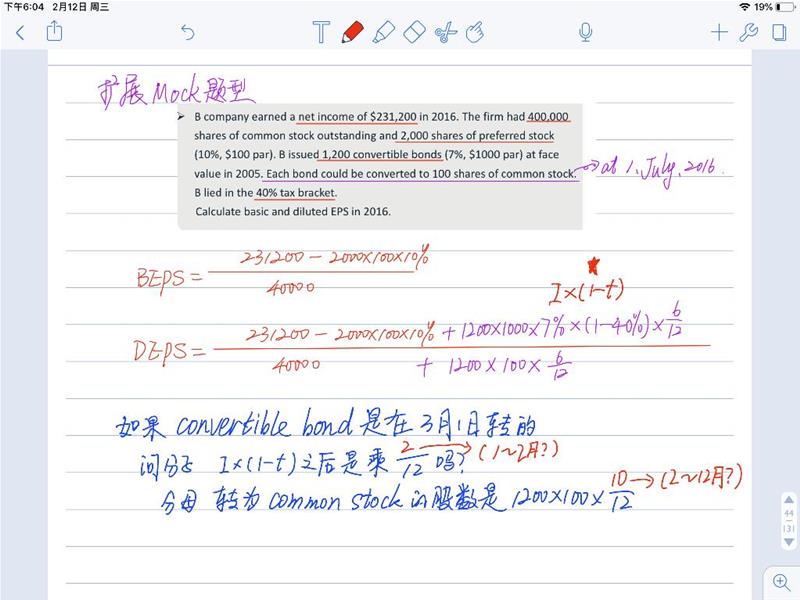 下午6:04 2月12日 周三 19%
扩展Mock题型
➤ B company earned a net income of $231,200 in 2016. The firm had 400,000
shares of common stock outstanding and 2,000 shares of preferred stock
(10%, $100 par). B issued 1,200 convertible bonds (7%, $1000 par) at face
value in 2005. Each bond could be converted to 100 shares of common stock. → at 1, July, 2016.
B lied in the 40% tax bracket.
Calculate basic and diluted EPS in 2016.
231200 - 2000×100×10%
BEPS =
40000
★
I×(1-t)
231200 - 2000×100×10% + 1200×1000×7%×(1-40%)×6/12
DEPS =
40000 + 1200×100×6/12
如果 convertible bond 是在3月1日转的
问分子 I×(1-t)之后是乘 2/12 吗? → (1~2月?)
分母 转为common stock的股数是 1200×100×10/12 → (2~12月?)
44
131